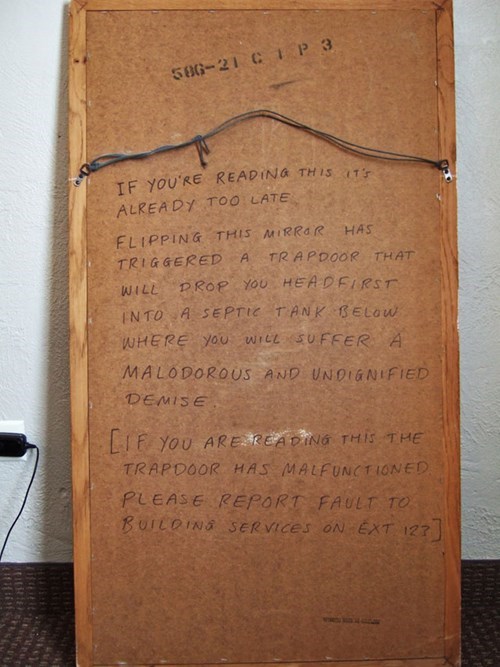 58G-21 C 1 P 3
IF YOU'RE READING THIS IT'S
ALREADY TOO LATE
FLIPPING THIS MIRROR HAS
TRIGGERED A TRAPDOOR THAT
WILL DROP YOU HEADFIRST
INTO A SEPTIC TANK BELOW
WHERE YOU WILL SUFFER A
MALODOROUS AND UNDIGNIFIED
DEMISE.
[IF YOU ARE READING THIS THE
TRAPDOOR HAS MALFUNCTIONED
PLEASE REPORT FAULT TO
BUILDING SERVICES ON EXT 123]